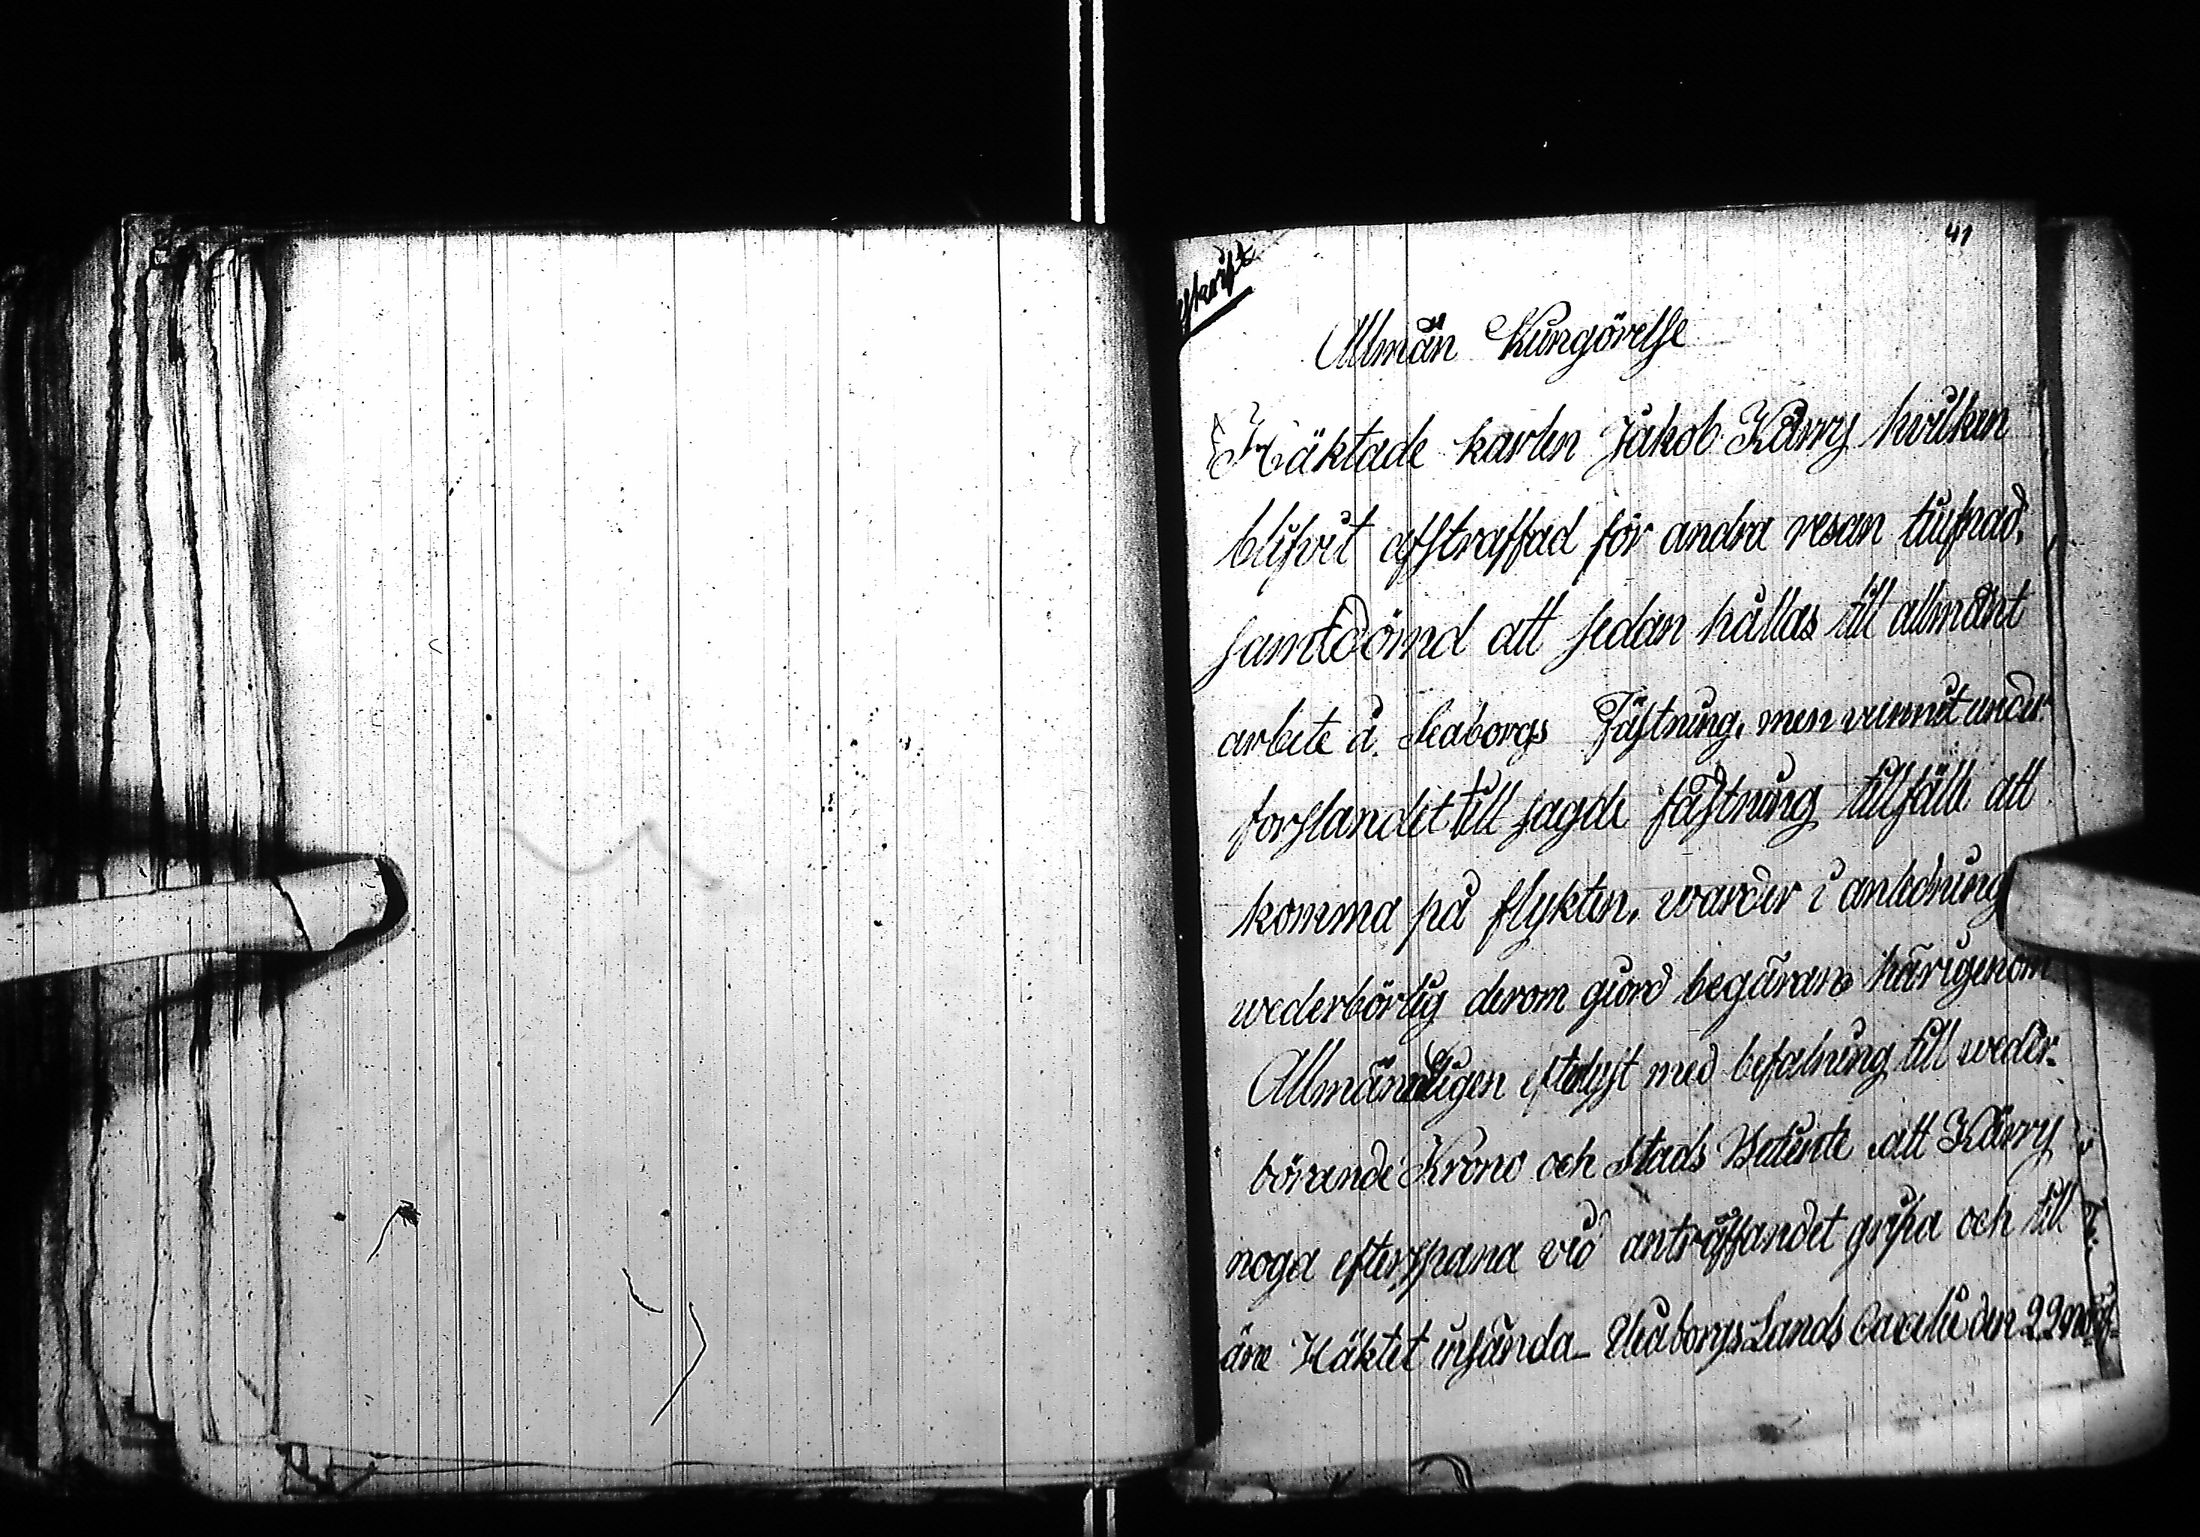 41
Afskrift
Allmän Kungörelse
Häktade karlen Jakob Kärry hvilken
blifvit afstraffad för andra resan tiufnad,
samt dömd att sedan hållas till allmänt
arbete å Uleaborgs Fästning, men vunnit under
forslandet till sagde fästning tillfälle att
komma på flykten, warder i anledning
wederbörlig derom giord begäran härigenom
Allmänneligen efterlyst med befalning till weder-
börande Krono och Stads Betiente att Kärry
noga efterspana vid anträffandet gripa och till
äre Häktet insända Uleaborgs Lands Cancelie den 22